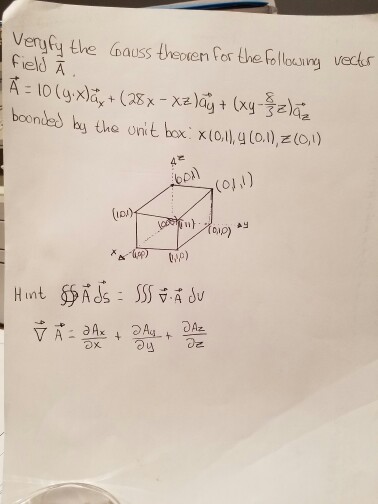 Veryfy the Gauss theorem for the following vector
field A̅.
A⃗ = 10(y-x)a⃗x + (28x - xz)a⃗y + (xy - 8/3 z)a⃗z
boonded by the unit box: x(0,1), y(0,1), z(0,1)
z
(0,1,1)
(1,0,1)
(1,1,1)
(0,1,0)
y
x
(1,0,0)
(1,1,0)
Hint ∯ A⃗ ds⃗ = ∭ ∇⃗·A⃗ dv
∇⃗ A⃗ = ∂Ax/∂x + ∂Ay/∂y + ∂Az/∂z